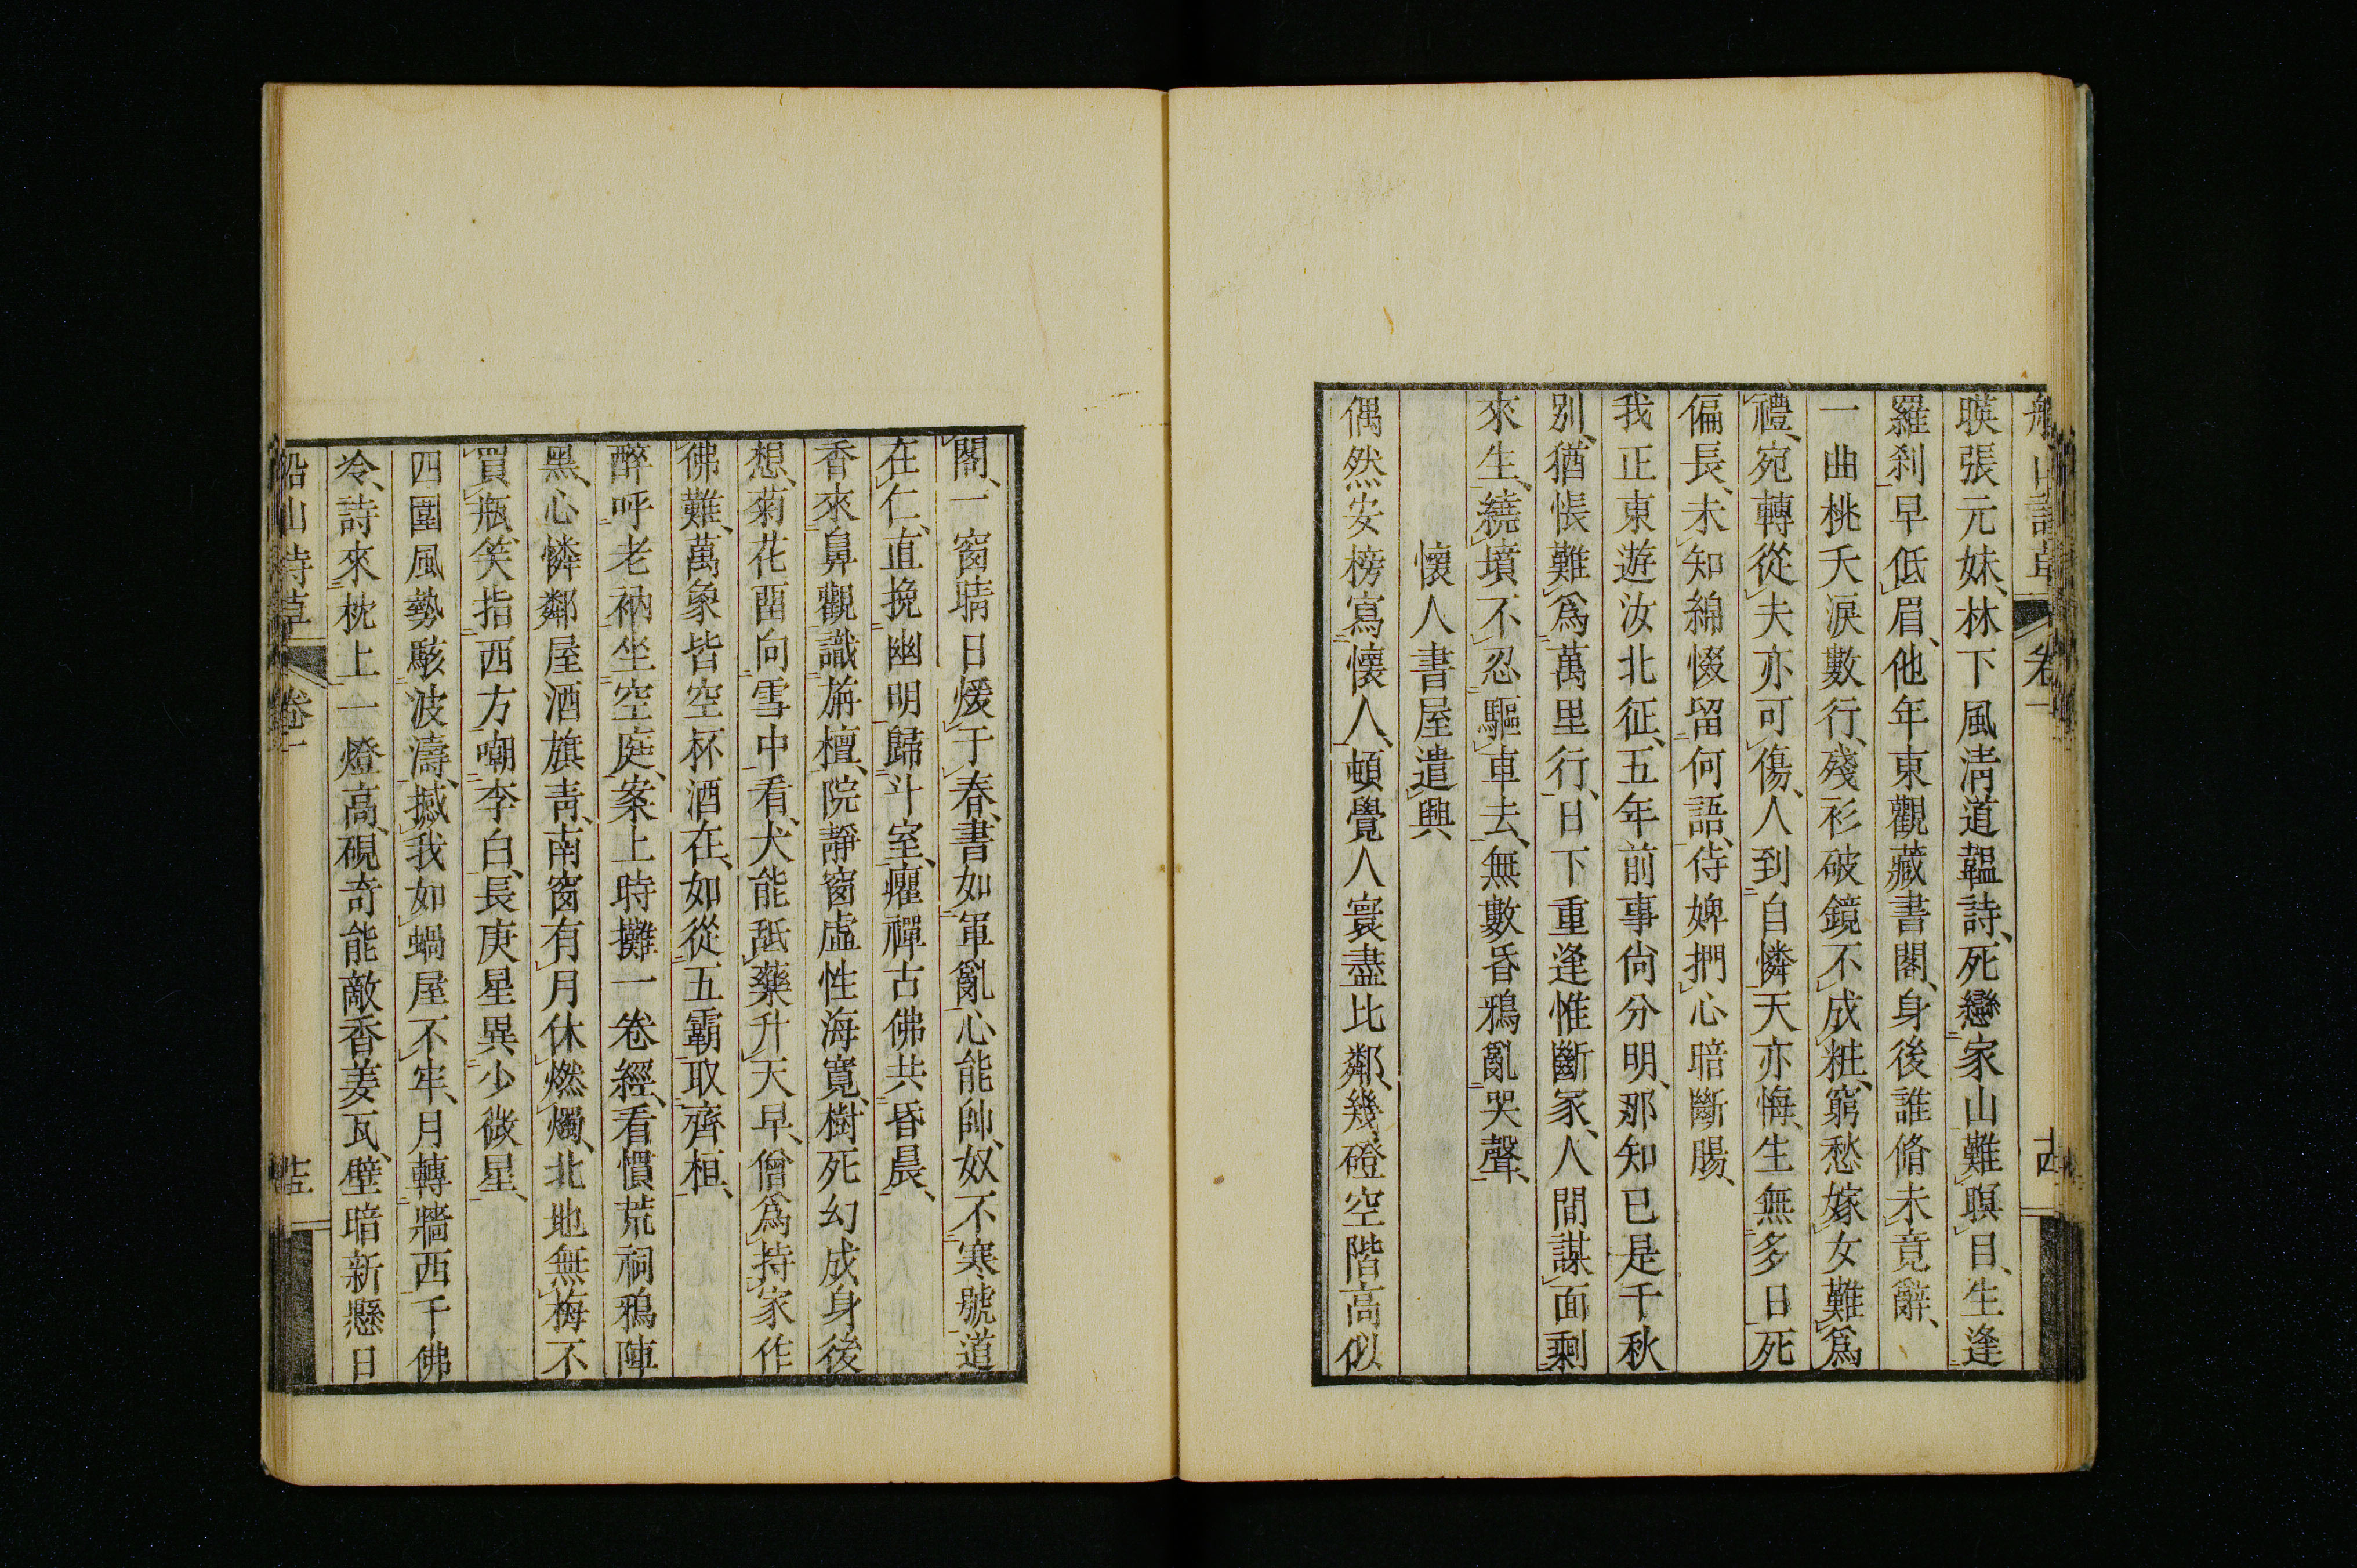 船山詩草 卷一 十四
暎張元妹、林下風淸道韞詩、死戀家山難瞑目、生逢
羅刹早低眉、他年東觀藏書閣、身後誰脩未竟辭、
一曲桃夭淚數行、殘衫破鏡不成粧、窮愁嫁女難爲
禮、宛轉從夫亦可傷、人到自憐天亦悔、生無多日死
偏長、未知綿惙留何語、侍婢捫心暗斷腸、
我正東遊汝北征、五年前事尙分明、那知已是千秋
別、猶悵難爲萬里行、日下重逢惟斷冢、人間謀面剩
來生、繞墳不忍驅車去、無數昏鴉亂哭聲、
懷人書屋遣興
偶然安榜寫懷人、頓覺人寰盡比鄰、幾磴空階高似
閣、一窗晴日煖于春、書如軍亂心能帥、奴不寒號道
在仁、直挽幽明歸斗室、癯禪古佛共昏晨、
香來鼻觀識旃檀、院靜窗虛性海寬、樹死幻成身後
想、菊花畱向雪中看、犬能舐藥升天早、僧爲持家作
佛難、萬象皆空杯酒在、如從五霸取齊桓、
醉呼老衲坐空庭、案上時攤一卷經、看慣荒祠鴉陣
黑、心憐鄰屋酒旗靑、南窗有月休燃燭、北地無梅不
買瓶、笑指西方嘲李白、長庚星異少微星、
四圍風勢駭波濤、撼我如蝸屋不牢、月轉牆西千佛
冷、詩來枕上一燈高、硯奇能敵香姜瓦、壁暗新懸日
船山詩草 卷一 十五